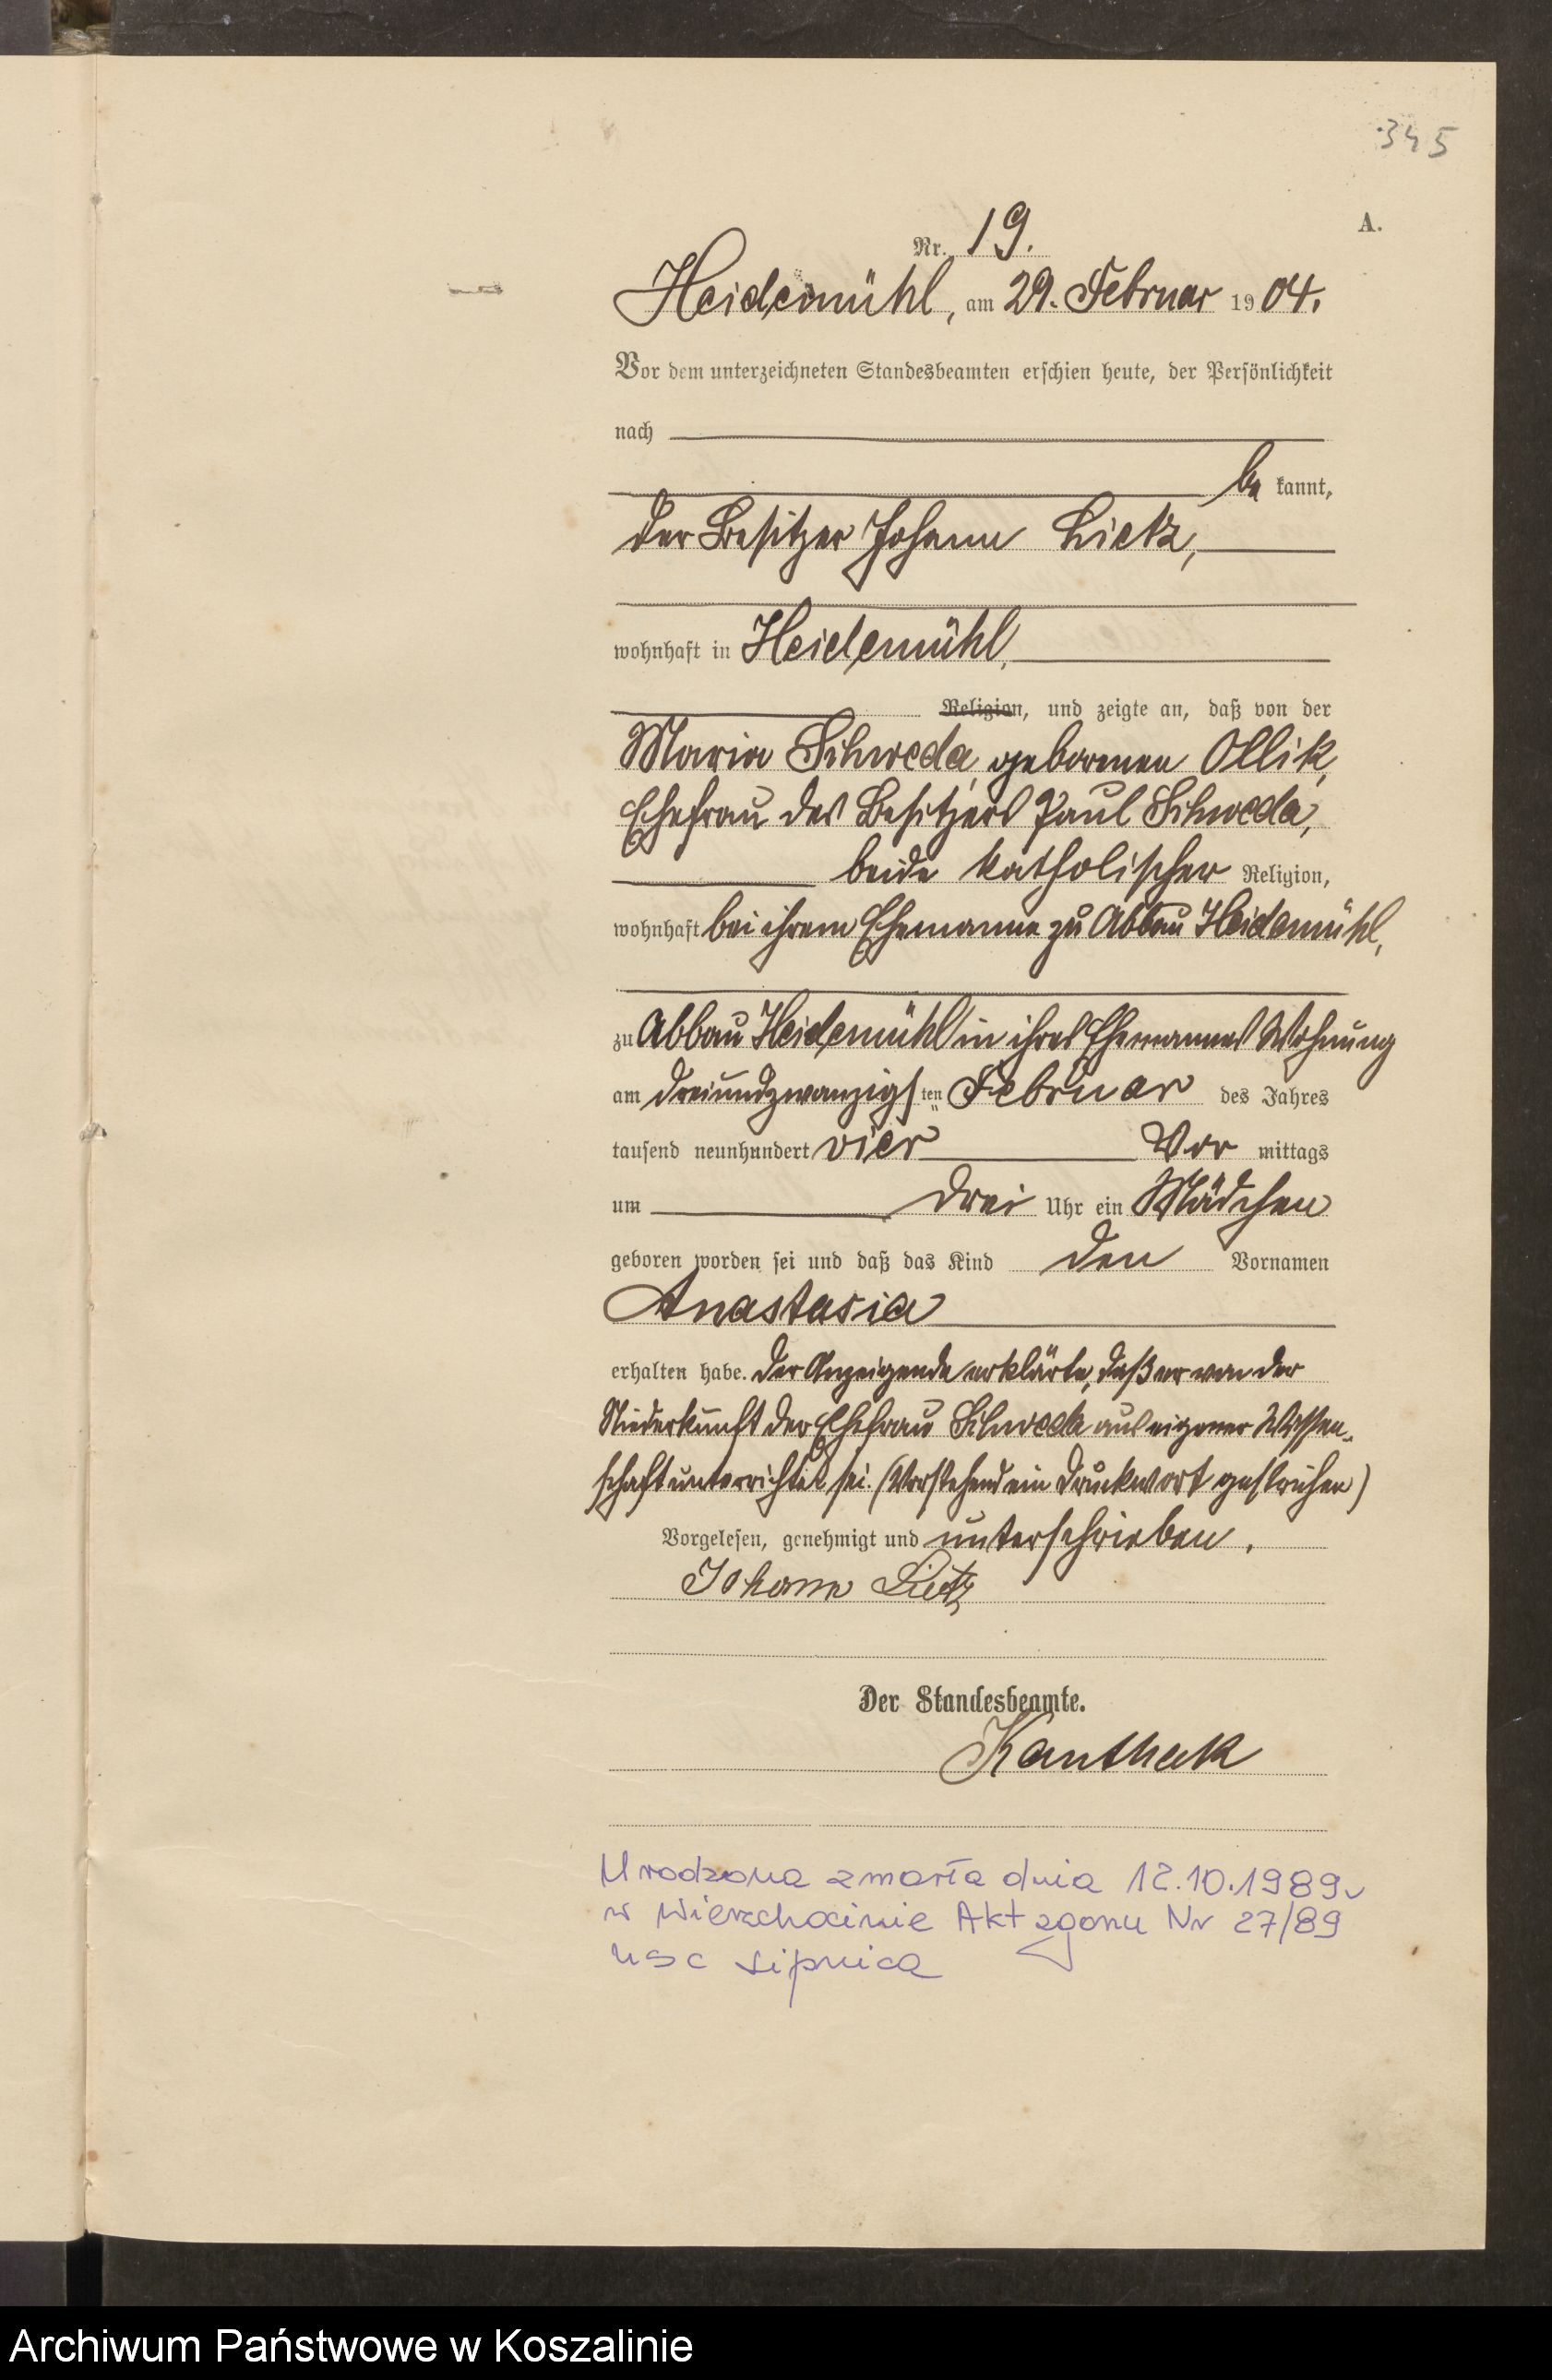 345
A.
Nr. 19.
Heidemühl, am 29. Februar 1904.
Vor dem unterzeichneten Standesbeamten erschien heute, der Persönlichkeit
nach
be kannt,
der Besitzer Johann Lietz,
wohnhaft in Heidemühl,
Religion, und zeigte an, daß von der
Maria Schweda, geborenen Ollik,
Ehefrau des Besitzers Paul Schweda,
beide katholischer Religion,
wohnhaft bei ihrem Ehemanne zu Abbau Heidemühl,
zu Abbau Heidemühl in ihres Ehemannes Wohnung
am dreiundzwanzigsten Februar des Jahres
tausend neunhundert vier Vor mittags
um drei Uhr ein Mädchen
geboren worden sei und daß das Kind den Vornamen
Anastasia
erhalten habe. Der Anzeigende erklärte, daß er von der
Niederkunft der Ehefrau Schweda aus eigener Wissen-
schaft unterrichtet sei. (Vorstehend ein Druckwort gestrichen)
Vorgelesen, genehmigt und unterschrieben.
Johann Lietz
Der Standesbeamte.
Kanthak
Urodzona zmarła dnia 12.10.1989r
w Wierzchocinie Akt zgonu Nr 27/89
USC Lipnica
Archiwum Państwowe w Koszalinie